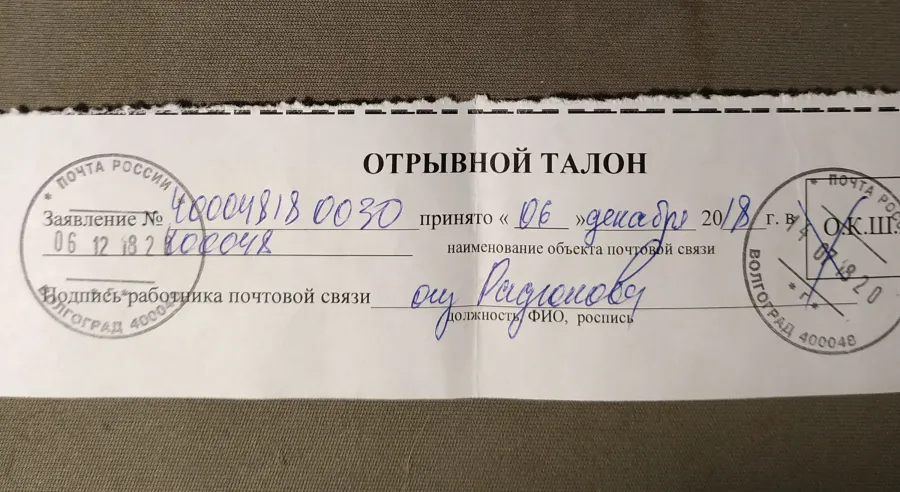 ОТРЫВНОЙ ТАЛОН
Заявление № 40004818 0030 принято « 06 » декабря 2018 г. в
400048
наименование объекта почтовой связи
Подпись работника почтовой связи
должность, ФИО, роспись
О.К.Ш.
* ПОЧТА РОССИИ *
06 12 18 2
ВОЛГОГРАД 400048
* ПОЧТА РОС
ВОЛГОГРАД 400048